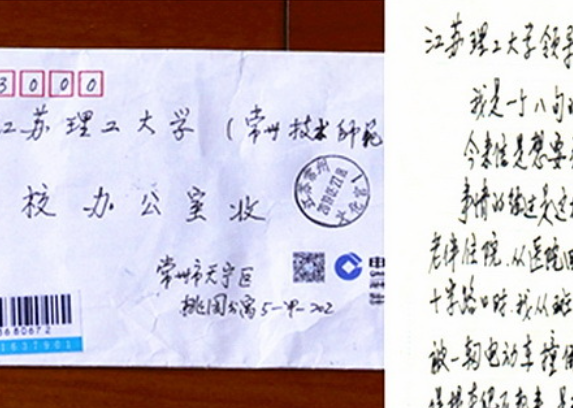 3000
江苏理工大学（常州技术师范
校办公室收
江苏常州
常州市天宁区
桃园公寓5-甲-202
680672
1637901
江苏理工大学领导
我是一个八旬
今来信是想要
事情的经过是这
老伴住院、从医院回
十字路口时、我从斑
被一辆电动车撞倒